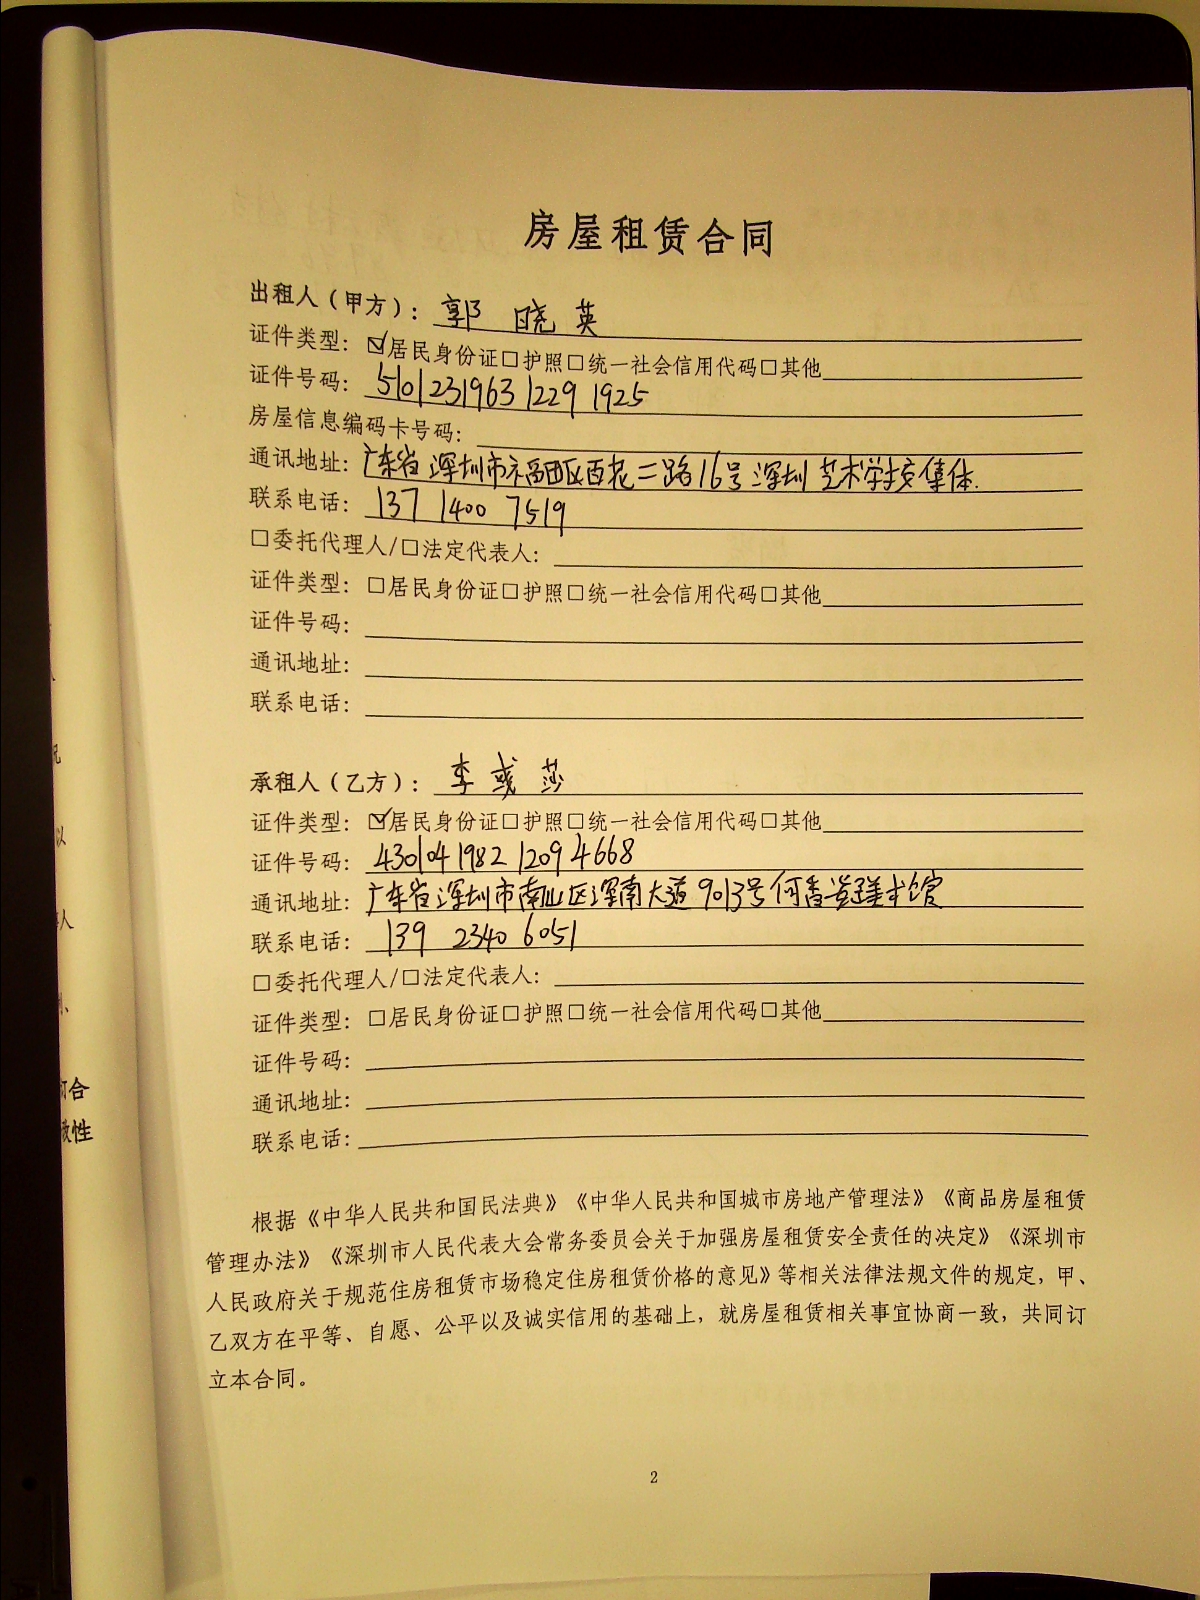 房屋租赁合同
出租人（甲方）：郭晓英
证件类型：☑居民身份证□护照□统一社会信用代码□其他
证件号码：510123196312291925
房屋信息编码卡号码：
通讯地址：广东省深圳市福田区百花二路16号深圳艺术学校集体.
联系电话：137 1400 7519
□委托代理人/□法定代表人：
证件类型：□居民身份证□护照□统一社会信用代码□其他
证件号码：
通讯地址：
联系电话：
承租人（乙方）：李彧莎
证件类型：☑居民身份证□护照□统一社会信用代码□其他
证件号码：430104198212094668
通讯地址：广东省深圳市南山区深南大道9013号何香凝美术馆
联系电话：139 2340 6051
□委托代理人/□法定代表人：
证件类型：□居民身份证□护照□统一社会信用代码□其他
证件号码：
通讯地址：
联系电话：
根据《中华人民共和国民法典》《中华人民共和国城市房地产管理法》《商品房屋租赁
管理办法》《深圳市人民代表大会常务委员会关于加强房屋租赁安全责任的决定》《深圳市
人民政府关于规范住房租赁市场稳定住房租赁价格的意见》等相关法律法规文件的规定，甲、
乙双方在平等、自愿、公平以及诚实信用的基础上，就房屋租赁相关事宜协商一致，共同订
立本合同。
2